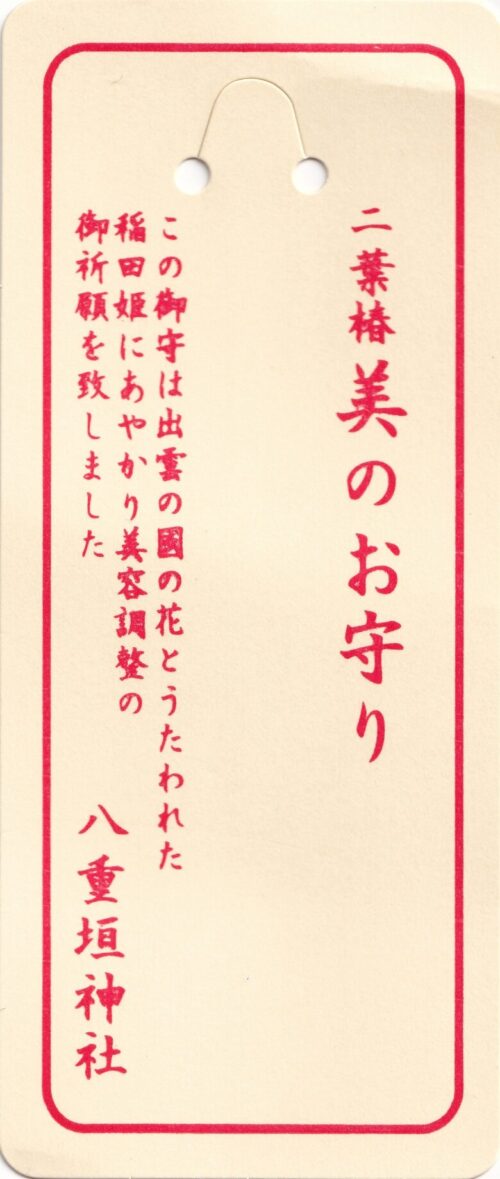 二葉椿 美のお守り
この御守は出雲の國の花とうたわれた
稲田姫にあやかり美容調整の
御祈願を致しました
八重垣神社